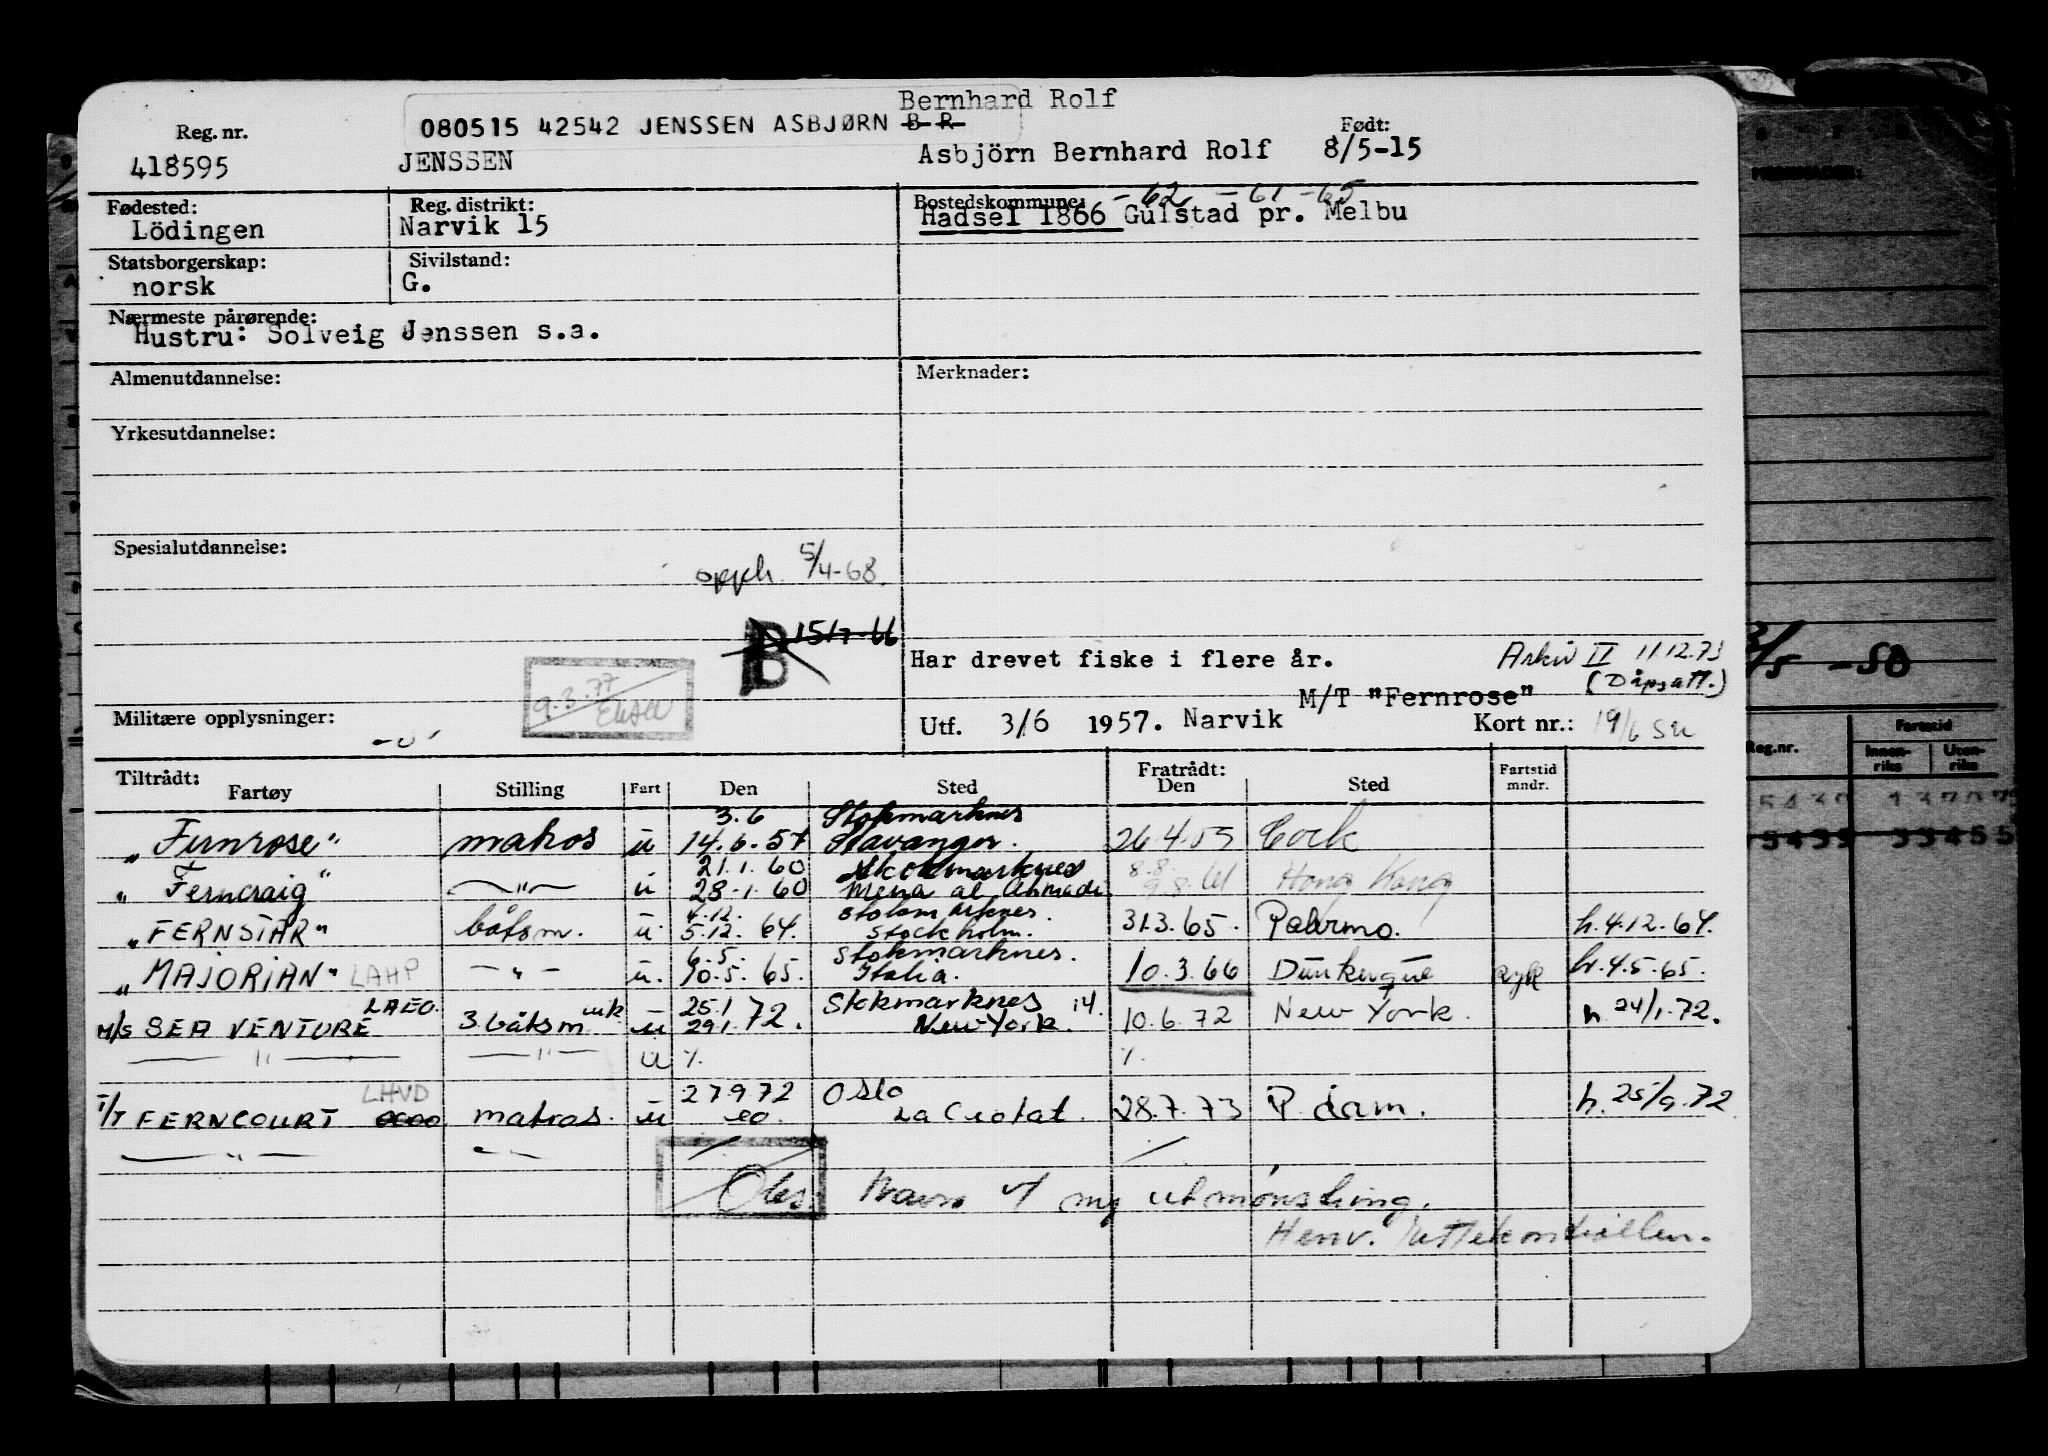 Bernhard Rolf
Reg. nr. 080515 42542 JENSSEN ASBJØRN B R Født:
418595 JENSSEN Asbjörn Bernhard Rolf 8/5-15
Fødested: Reg. distrikt: Bostedskommune: -62 -61 -65
Lödingen Narvik 15 Hadsel 1866 Gulstad pr. Melbu
Statsborgerskap: Sivilstand:
norsk G.
Nærmeste pårørende:
Hustru: Solveig Jenssen s.a.
Almenutdannelse: Merknader:
Yrkesutdannelse:
Spesialutdannelse:
5/4-68.
B 15/7-66
Har drevet fiske i flere år. Arkiv II 11.12.73
9.3.77 (Dåpsatt.)
M/T "Fernrose"
Militære opplysninger: Utf. 3/6 1957. Narvik Kort nr.: 19/6 su
Tiltrådt: Fratrådt: Fartstid
Fartøy Stilling Fart Den Sted Den Sted mndr.
3.6 Stokmarknes
"Fernrose" matros u 14.6.57 Stavanger. 26.4.59 Cork
21.1.60 Stokmarknes 8.8.
"Ferncraig" —"— u 28.1.60 Mena al Ahmadi 9.8.61 Hong Kong
4.12. Stokmarknes.
"FERNSTAR" båtsm. u 5.12.64. Stockholm. 31.3.65. Palermo. h.4.12.64.
6.5. Stokmarknes.
"MAJORIAN" LAHP —"— u. 10.5.65. Italia. 10.3.66 Dunkerque syk h.4.5.65.
LAEO. 25.1 Stokmarknes
M/S SEA VENTURE 3. båtsm u 29.1.72. New York. 10.6.72 New York. h. 24/1.72.
—"— —"— u %. %.
LHVD 27.9.72 Oslo
T/T FERNCOURT matros. u eo. La Ciotat. 28.7.73 P. dam. h. 25/9.72
—"— —"—
Obs. Navn v/ ny utmønstring.
Henv. Rettekontrollen.
3/5 -50
Reg.nr. Fartstid
Innen-riks Uten-riks